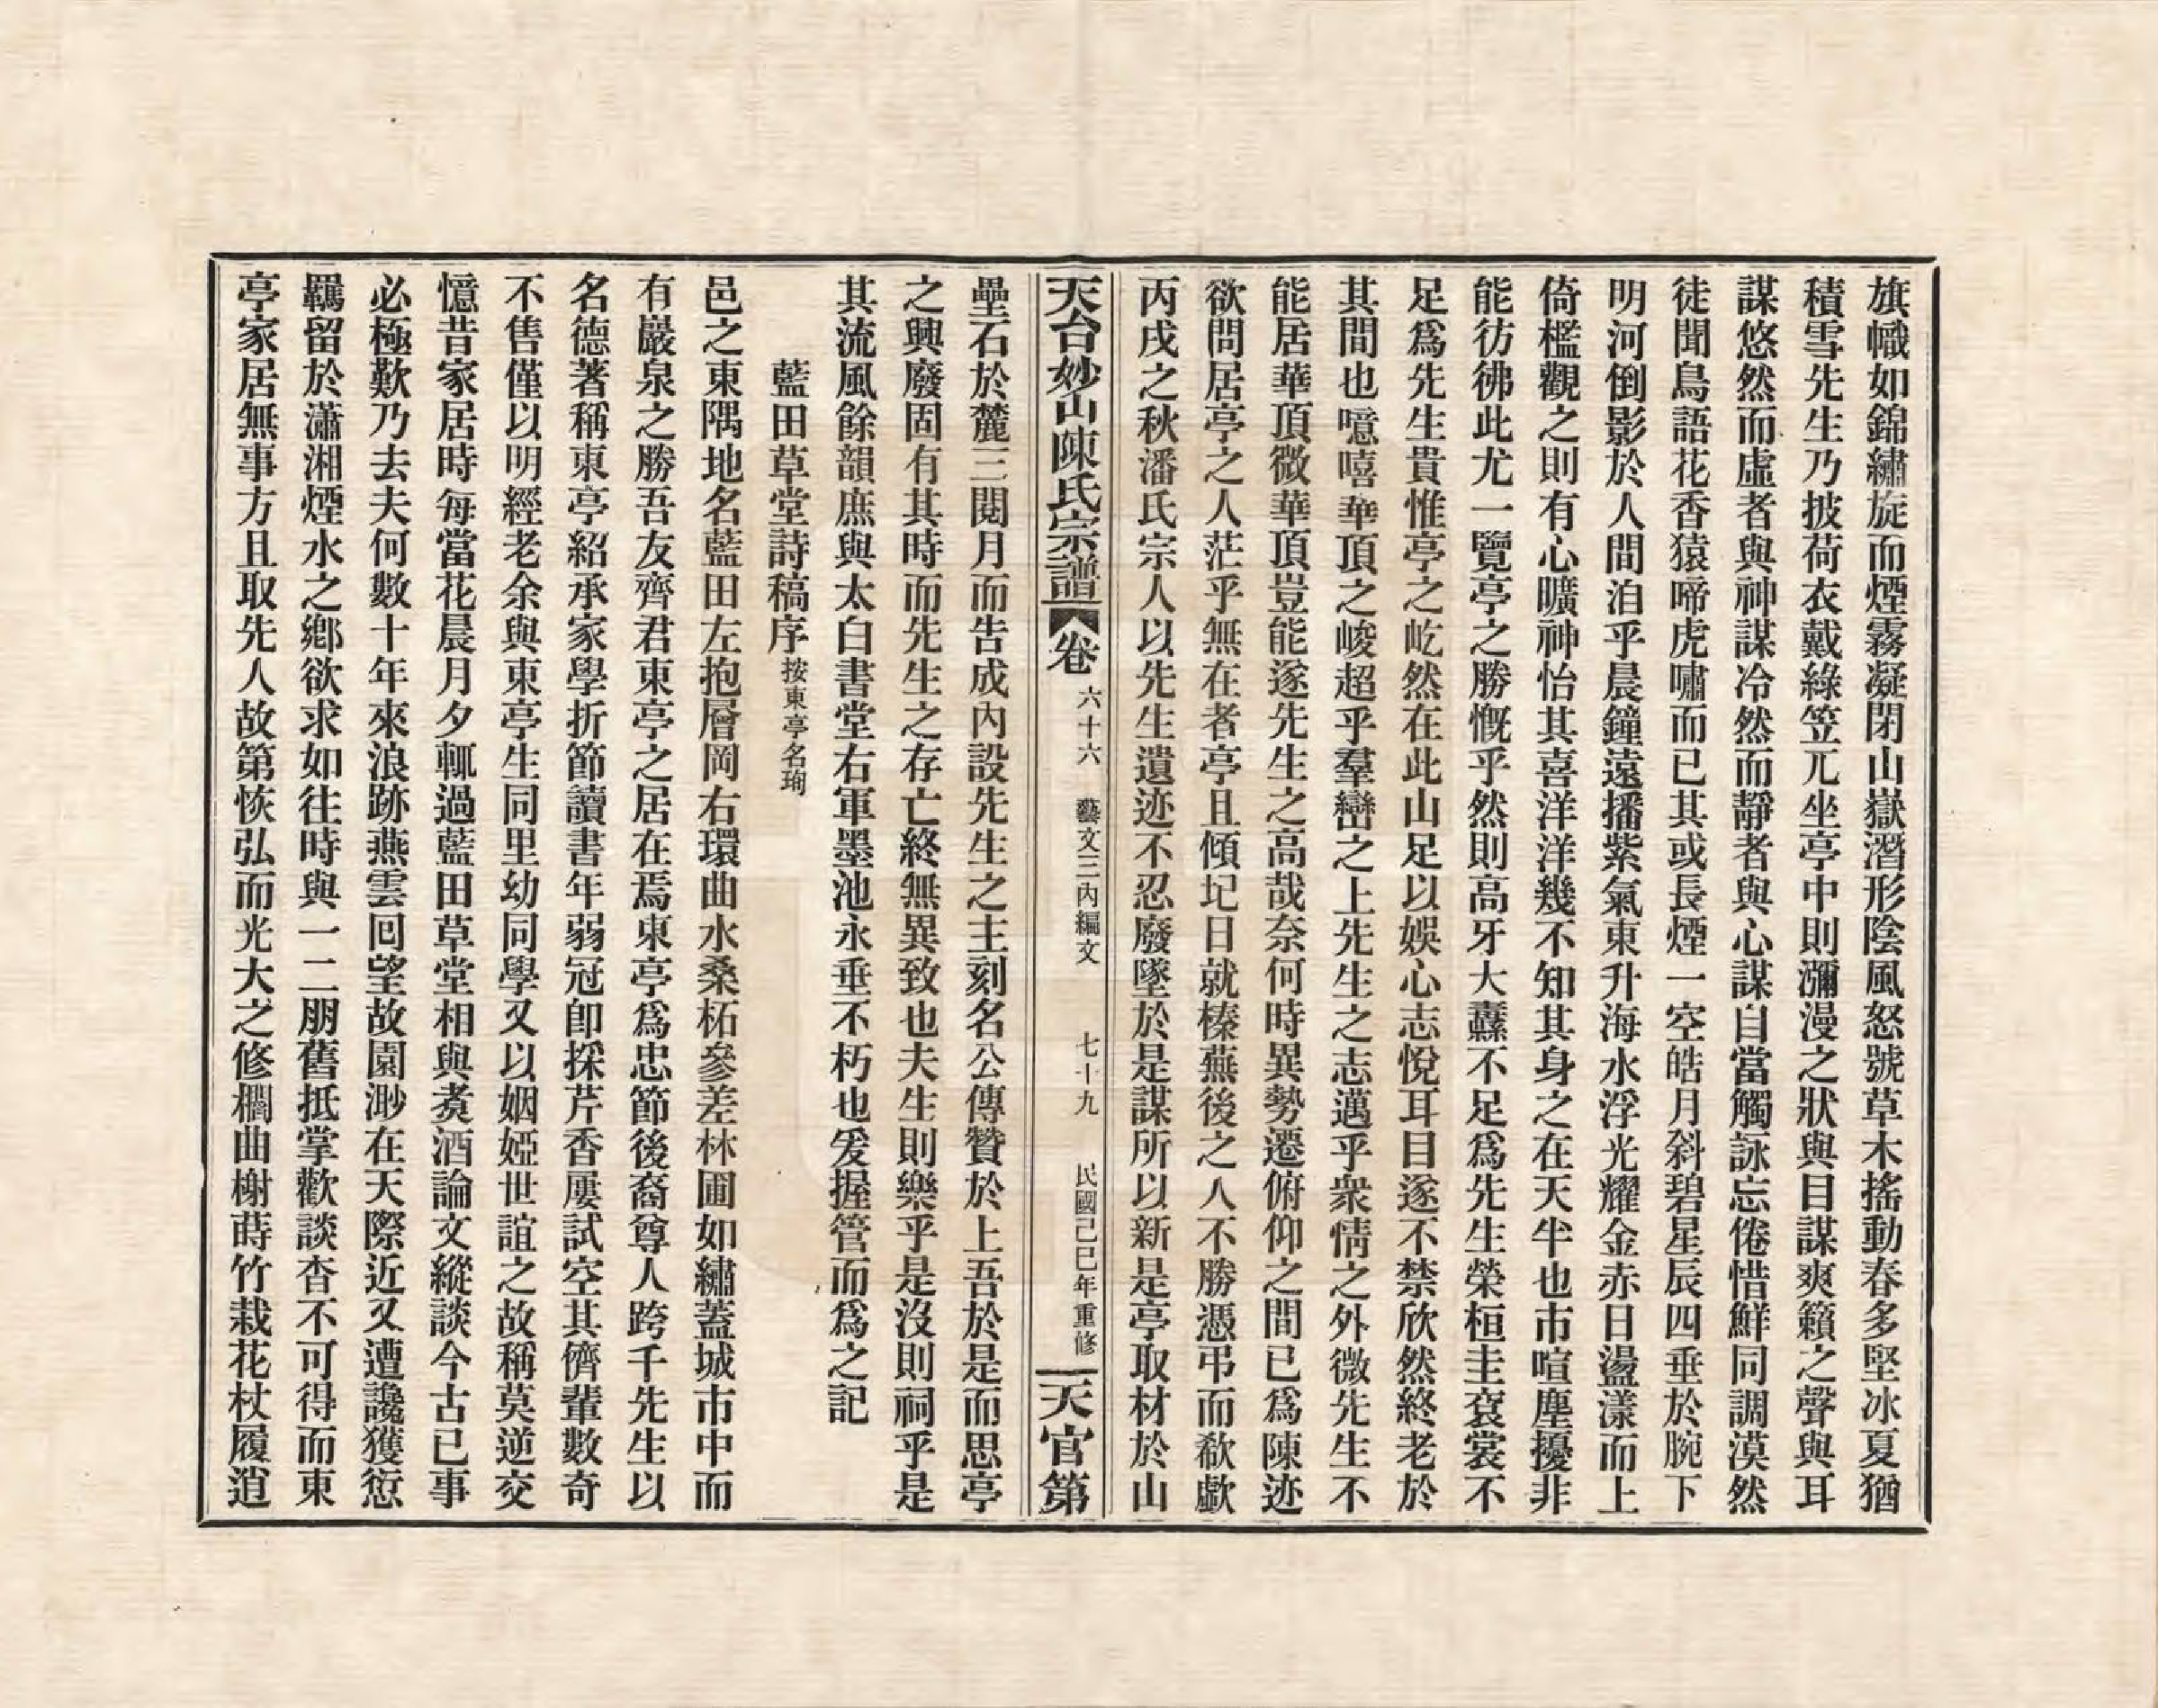 旗幟如錦繡旋而煙霧凝閉山嶽潛形陰風怒號草木搖動春多堅冰夏猶
積雪先生乃披荷衣戴綠笠兀坐亭中則瀰漫之狀與目謀爽籟之聲與耳
謀悠然而虛者與神謀冷然而靜者與心謀自當觸詠忘倦惜鮮同調漠然
徒聞鳥語花香猿啼虎嘯而已其或長煙一空皓月斜碧星辰四垂於腕下
明河倒影於人間洎乎晨鐘遠播紫氣東升海水浮光耀金赤日盪漾而上
倚檻觀之則有心曠神怡其喜洋洋幾不知其身之在天半也市喧塵擾非
能彷彿此尤一覽亭之勝慨乎然則高牙大纛不足爲先生榮桓圭袞裳不
足爲先生貴惟亭之屹然在此山足以娛心志悅耳目遂不禁欣然終老於
其間也噫嘻華頂之峻超乎羣巒之上先生之志邁乎衆情之外微先生不
能居華頂微華頂豈能遂先生之高哉奈何時異勢遷俯仰之間已爲陳迹
欲問居亭之人茫乎無在者亭且傾圮日就榛蕪後之人不勝憑弔而欷歔
丙戌之秋潘氏宗人以先生遺迹不忍廢墜於是謀所以新是亭取材於山
天台妙山陳氏宗譜 卷六十六 藝文三內編文 七十九 民國己巳年重修 天官第
壘石於麓三閱月而告成內設先生之主刻名公傳贊於上吾於是而思亭
之興廢固有其時而先生之存亡終無異致也夫生則樂乎是沒則祠乎是
其流風餘韻庶與太白書堂右軍墨池永垂不朽也爰握管而爲之記
藍田草堂詩稿序 按東亭名珣
邑之東隅地名藍田左抱層岡右環曲水桑柘參差林圃如繡蓋城市中而
有巖泉之勝吾友齊君東亭之居在焉東亭爲忠節後裔尊人跨千先生以
名德著稱東亭紹承家學折節讀書年弱冠卽採芹香屢試空其儕輩數奇
不售僅以明經老余與東亭生同里幼同學又以姻婭世誼之故稱莫逆交
憶昔家居時每當花晨月夕輒過藍田草堂相與煑酒論文縱談今古已事
必極歎乃去夫何數十年來浪跡燕雲回望故園渺在天際近又遭讒獲愆
羈留於瀟湘煙水之鄉欲求如往時與一二朋舊抵掌歡談杳不可得而東
亭家居無事方且取先人故第恢弘而光大之修欄曲榭蒔竹栽花杖履逍